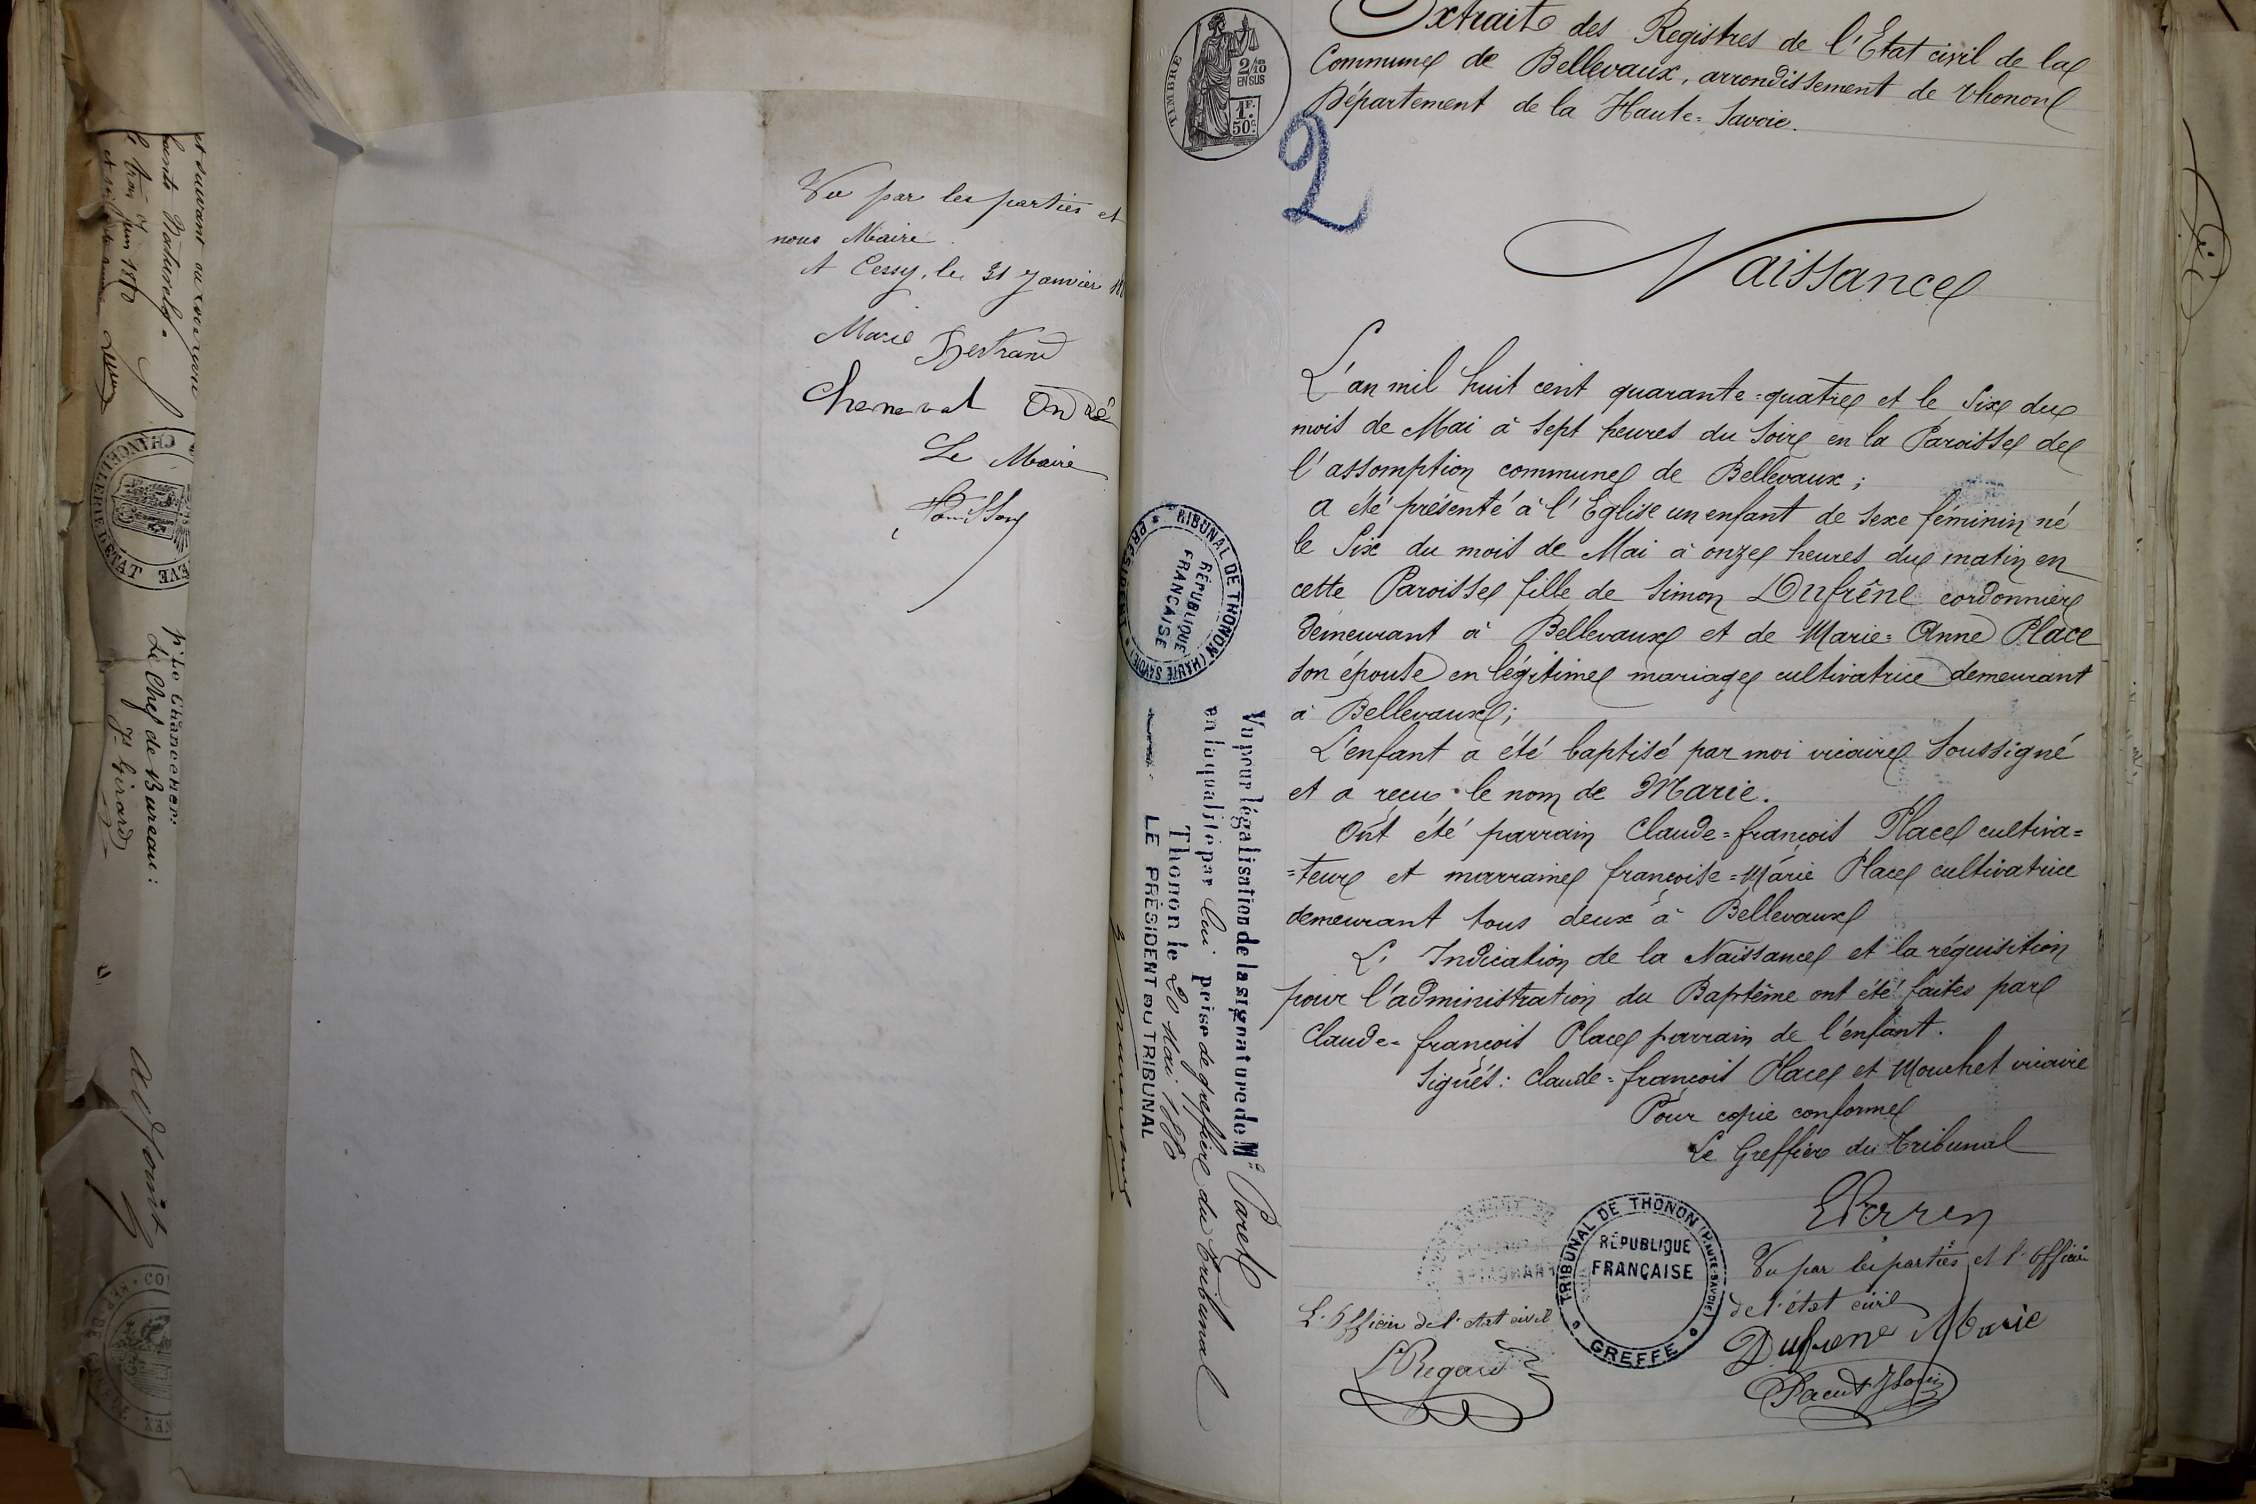 et suivant
Sainte Naturelle.
le trois juin 1870
CHANCELLERIE D'ÉTAT
p. le Chancelier:
Le Chef de Bureau:
Girard
Vu par les parties et
nous Maire
A Cessy, le 31 Janvier
Marie Bertrand
Cheneval André
Le Maire
TIMBRE
2/10
EN SUS
1F.
50c.
2
Extrait des Registres de l'Etat civil de la
Commune de Bellevaux, arrondissement de Thonon
Département de la Haute-Savoie.
Naissance
L'an mil huit cent quarante-quatre et le six du
mois de Mai à sept heures du soir en la Paroisse de
l'assomption commune de Bellevaux;
a été présenté à l'Eglise un enfant de sexe féminin né
le six du mois de Mai à onze heures du matin en
cette Paroisse fille de Simon Dufrêne cordonnier
demeurant à Bellevaux et de Marie-Anne Place
son épouse en légitime mariage cultivatrice demeurant
à Bellevaux;
L'enfant a été baptisé par moi vicaire soussigné
et a reçu le nom de Marie.
Ont été parrain Claude-françois Place cultiva=
=teur et marraine françoise-Marie Place cultivatrice
demeurant tous deux à Bellevaux
L'Indication de la Naissance et la réquisition
pour l'administration du Baptême ont été faites par
Claude-françois Place parrain de l'enfant.
Signés: Claude-françois Place et Mouchet vicaire
Pour copie conforme
Le Greffier du Tribunal
EPerren
Vu par les parties et l'officier
de l'état civil
Dufrene Marie
L'Officier de l'état civil
L Regard
TRIBUNAL DE THONON (HAUTE-SAVOIE)
RÉPUBLIQUE
FRANÇAISE
GREFFE
TRIBUNAL DE THONON (HAUTE SAVOIE)
PRÉSIDENT
RÉPUBLIQUE
FRANÇAISE
Vu pour légalisation de la signature de Me
en la qualité par lui prise de greffier du tribunal
Thonon le 20 Mai 1886
LE PRÉSIDENT DU TRIBUNAL